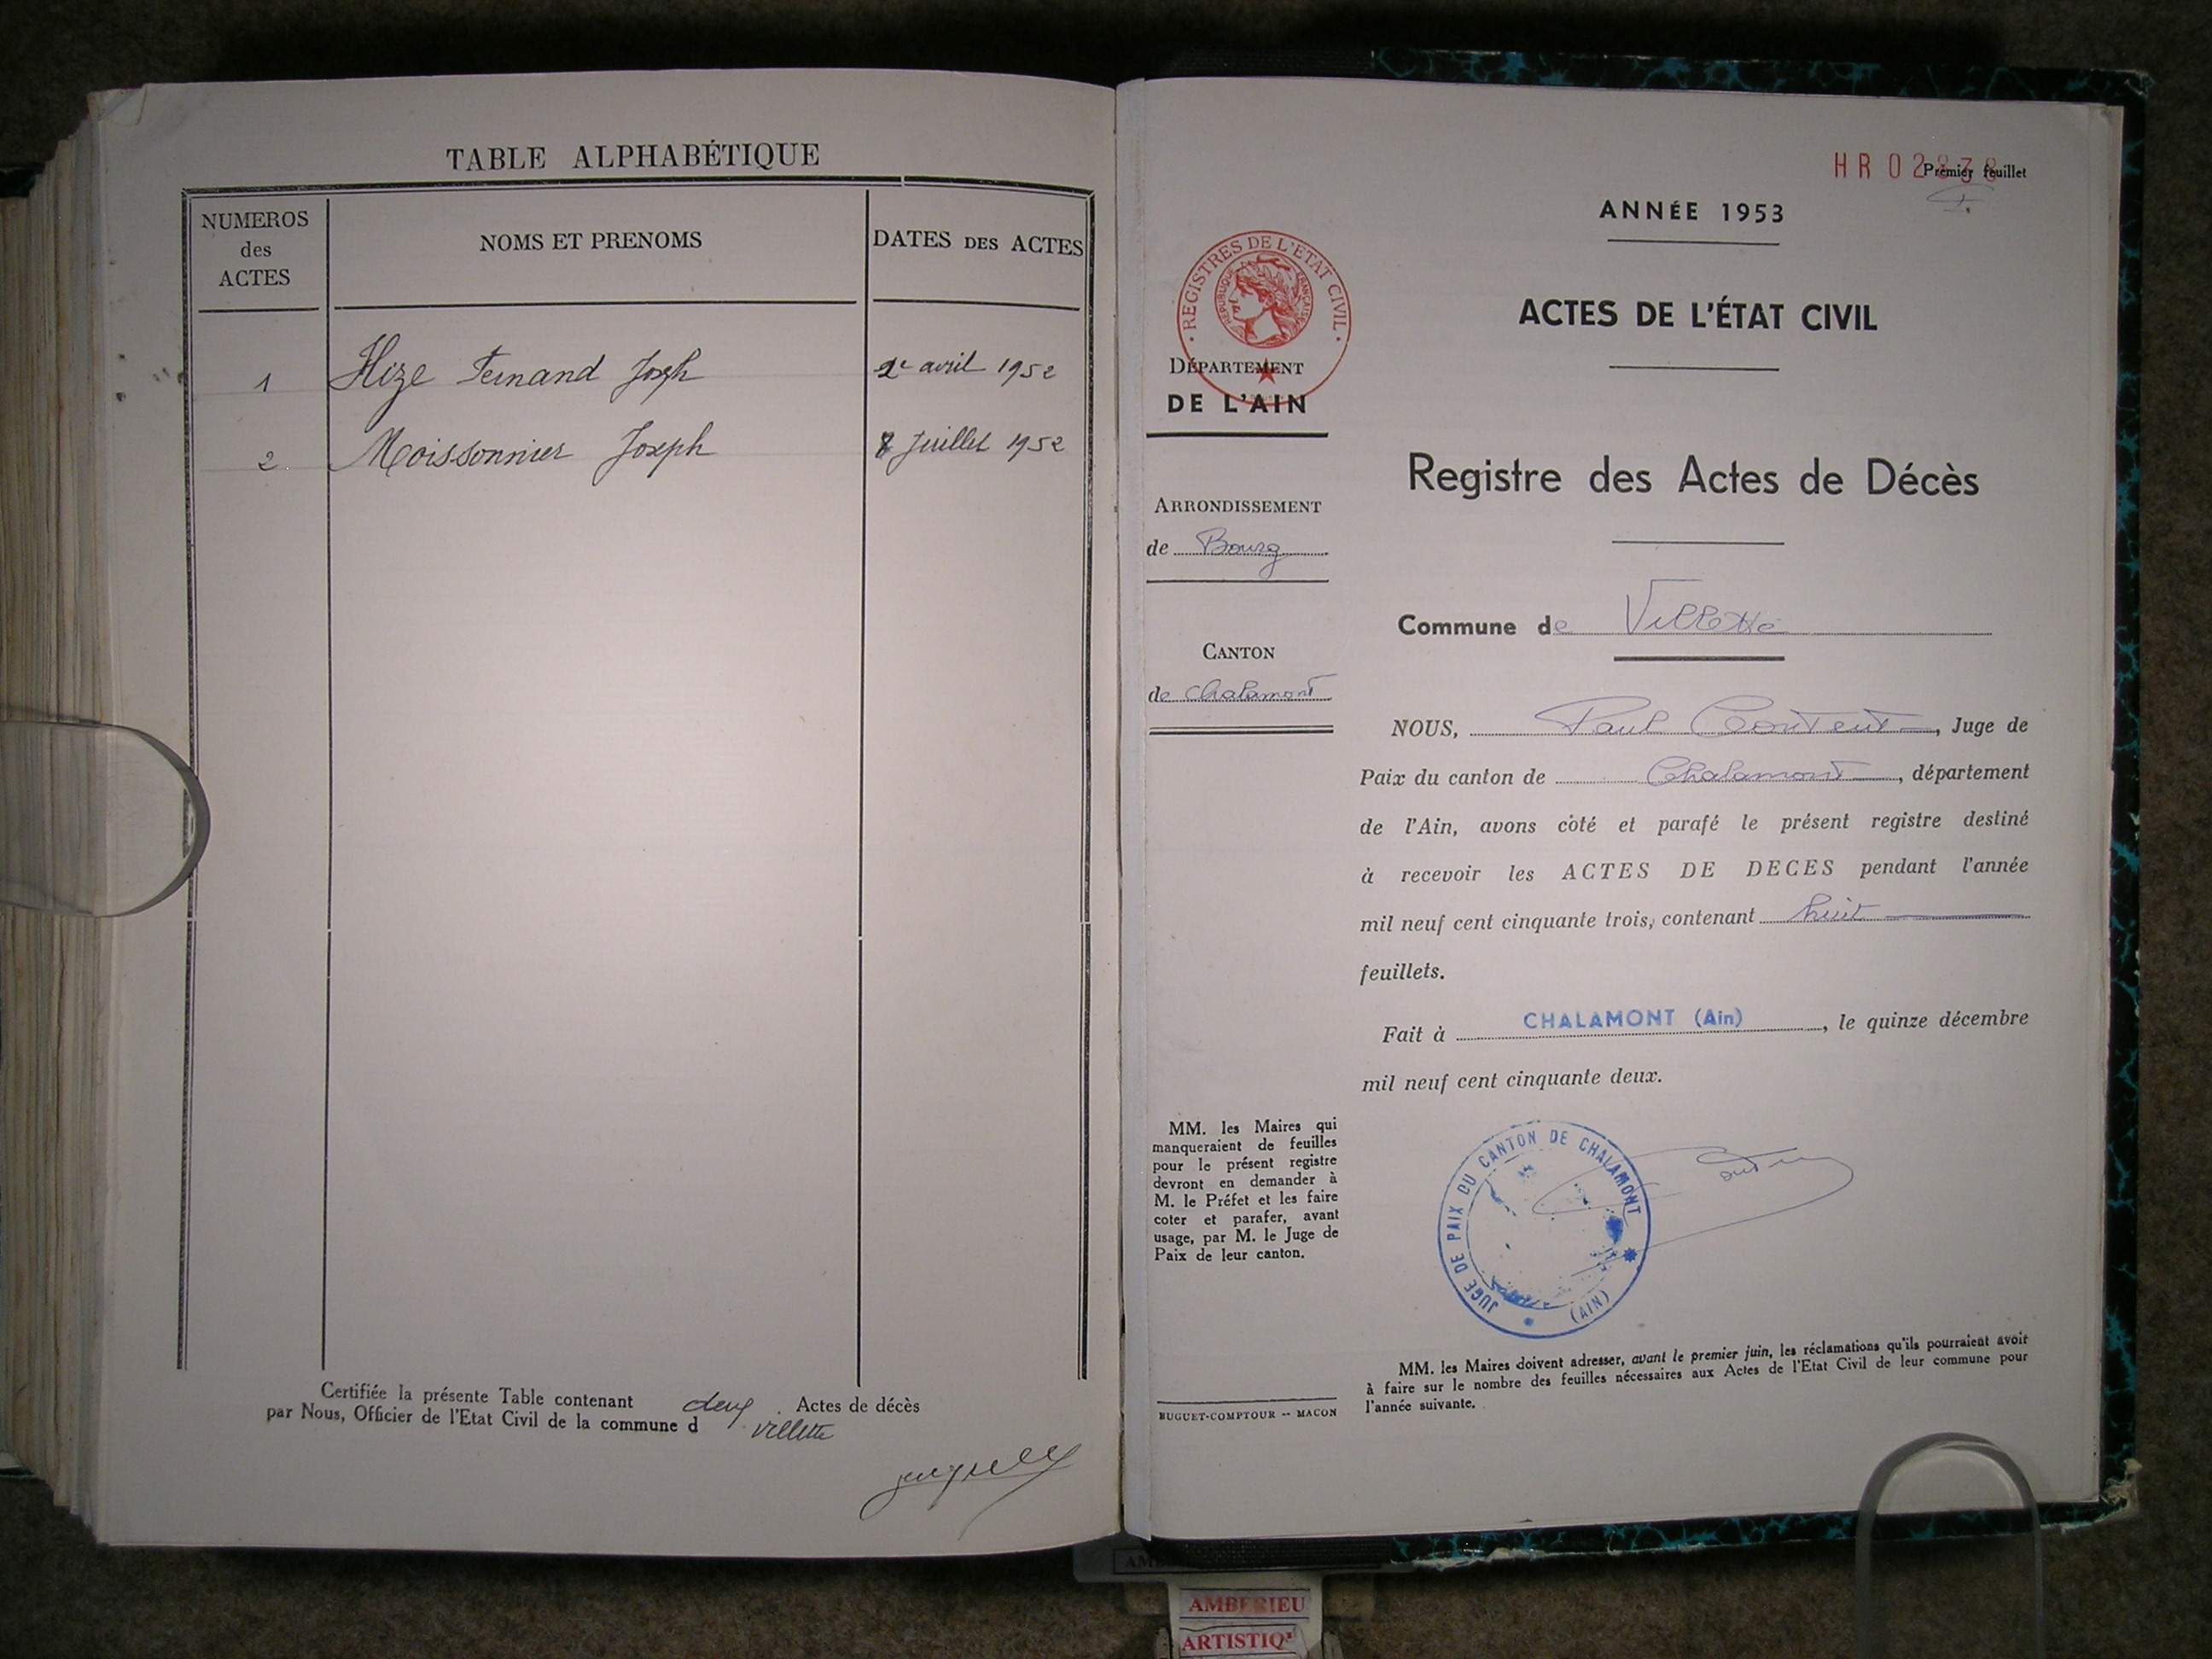 TABLE ALPHABÉTIQUE
NUMEROS
des
ACTES
NOMS ET PRENOMS
DATES DES ACTES
1 Hize Fernand Joseph 2e avril 1952
2 Moissonnier Joseph 8 Juillet 1952
Certifiée la présente Table contenant deux Actes de décès
par Nous, Officier de l'Etat Civil de la commune d villette
HR 02
Premier feuillet
ANNÉE 1953
REGISTRES DE L'ETAT CIVIL
REPUBLIQUE FRANÇAISE
DÉPARTEMENT
DE L'AIN
ARRONDISSEMENT
de Bourg
CANTON
de Chalamont
MM. les Maires qui
manqueraient de feuilles
pour le présent registre
devront en demander à
M. le Préfet et les faire
coter et parafer, avant
usage, par M. le Juge de
Paix de leur canton.
BUGUET-COMPTOUR -- MACON
ACTES DE L'ÉTAT CIVIL
Registre des Actes de Décès
Commune de Villette
NOUS, Paul Content, Juge de
Paix du canton de Chalamont, département
de l'Ain, avons côté et parafé le présent registre destiné
à recevoir les ACTES DE DECES pendant l'année
mil neuf cent cinquante trois, contenant huit
feuillets.
Fait à CHALAMONT (Ain), le quinze décembre
mil neuf cent cinquante deux.
JUGE DE PAIX DU CANTON DE CHALAMONT
(AIN)
MM. les Maires doivent adresser, avant le premier juin, les réclamations qu'ils pourraient avoir
à faire sur le nombre des feuilles nécessaires aux Actes de l'Etat Civil de leur commune pour
l'année suivante.
AMBERIEU
ARTISTIQ